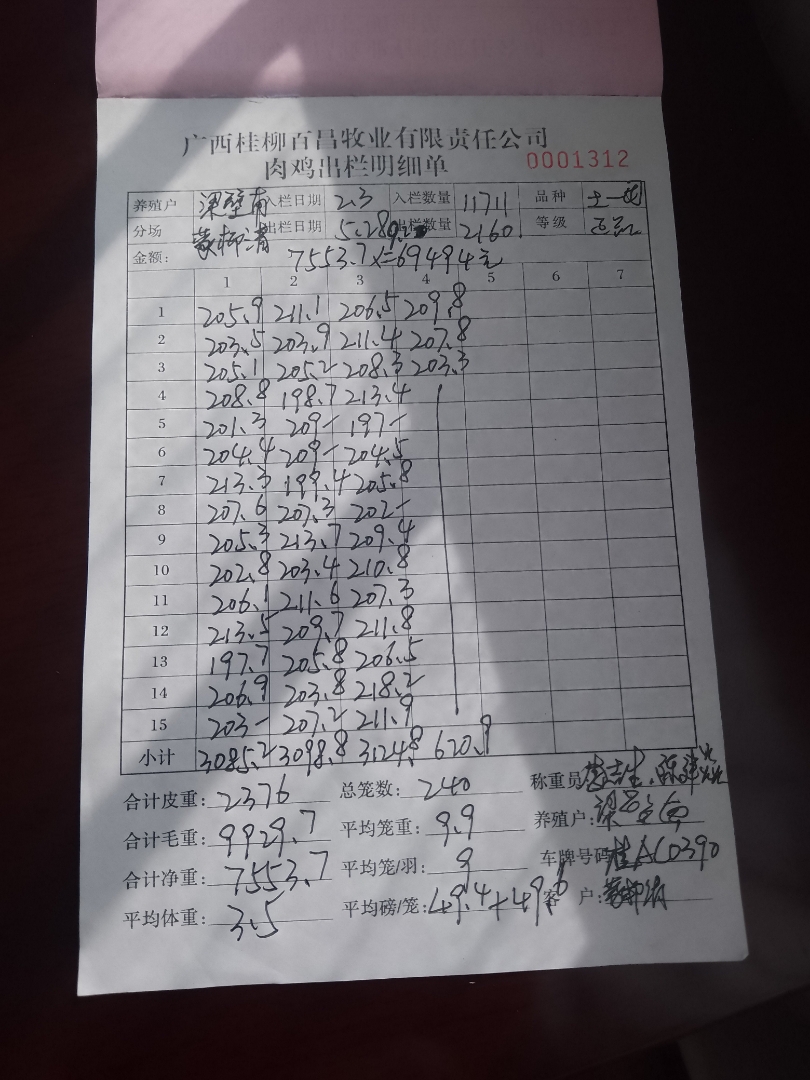 广西桂柳百昌牧业有限责任公司
肉鸡出栏明细单 0001312
养殖户 入栏日期 2.3 入栏数量 11711 品种
分场 出栏日期 5.28 出栏数量 2160 等级
金额: 7553.7x=69494元
1 2 3 4 5 6 7
1 205.9 211.1 206.5 209.8
2 203.5 203.9 211.4 207.8
3 205.1 205.2 208.3 203.3
4 208.8 198.7 213.4
5 201.3 209- 197-
6 204.4 209- 204.5
7 213.3 199.4 205.8
8 207.6 207.3 202-
9 205.3 213.7 209.4
10 202.8 203.4 210.8
11 206.1 211.6 207.3
12 213.5 209.7 211.8
13 197.7 205.8 206.5
14 206.9 203.8 218.2
15 203- 207.2 211.9
小计 3085.2 3098.8 3124.8 620.9
合计皮重: 2376 总笼数: 240 称重员
合计毛重: 9929.7 平均笼重: 9.9 养殖户:
合计净重: 7553.7 平均笼/羽: 9 车牌号码 桂AC0390
平均体重: 3.5 平均磅/笼: 49.4+49.6 客 户: